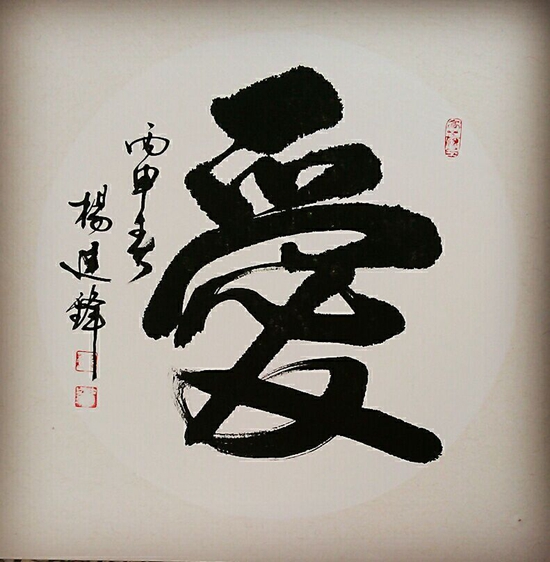 愛
丙申春
楊廷鋒